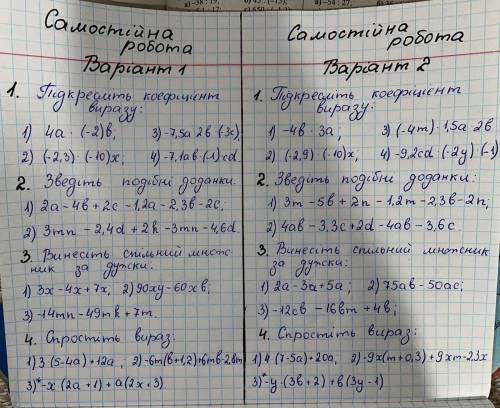 Самостійна
робота
Варіант 1
1. Підкресліть коефіцієнт
виразу:
1) 4а · (-2)в; 3) -7,5а · 2в · (3с)
2) (-2,3) · (-10)х; 4) -7,1ав · (-1) cd.
2. Зведіть подібні доданки.
1) 2а - 4в + 2с - 1,2а - 2,3в - 2с;
2) 3mn - 2,4d + 2k - 3mn - 4,6d.
3. Винесіть спільний множ-
ник за дужки:
1) 3х - 4х + 7х, 2) 90ху - 60хв;
3) -14mn - 49mk + 7m.
4. Спростіть вираз:
1) 3 · (5 - 4а) + 12а, 2) -6m(в + 1,2) + 6mв - 2,8m
3)* -х · (2а + 1) + а(2х + 3).
Самостійна
робота
Варіант 2
1. Підкресліть коефіцієнт
виразу:
1) -4в · 3а; 3) (-4m) · 1,5а · 2в
2) (-2,9) · (-10)х; 4) -9,2cd · (-2у) · (-1)
2. Зведіть подібні доданки:
1) 3m - 5в + 2n - 1,2m - 2,3в - 2n;
2) 4ав - 3,3с + 2d - 4ав - 3,6с.
3. Винесіть спільний множник
за дужки:
1) 2а - 3а + 5а; 2) 75ав - 50ас;
3) -12св - 16вm + 4в;
4. Спростіть вираз:
1) 4 · (7 - 5а) + 20а, 2) -9х(m + 0,3) + 9хm - 2,3х
3)* -у · (3в + 2) + в(3у - 1)